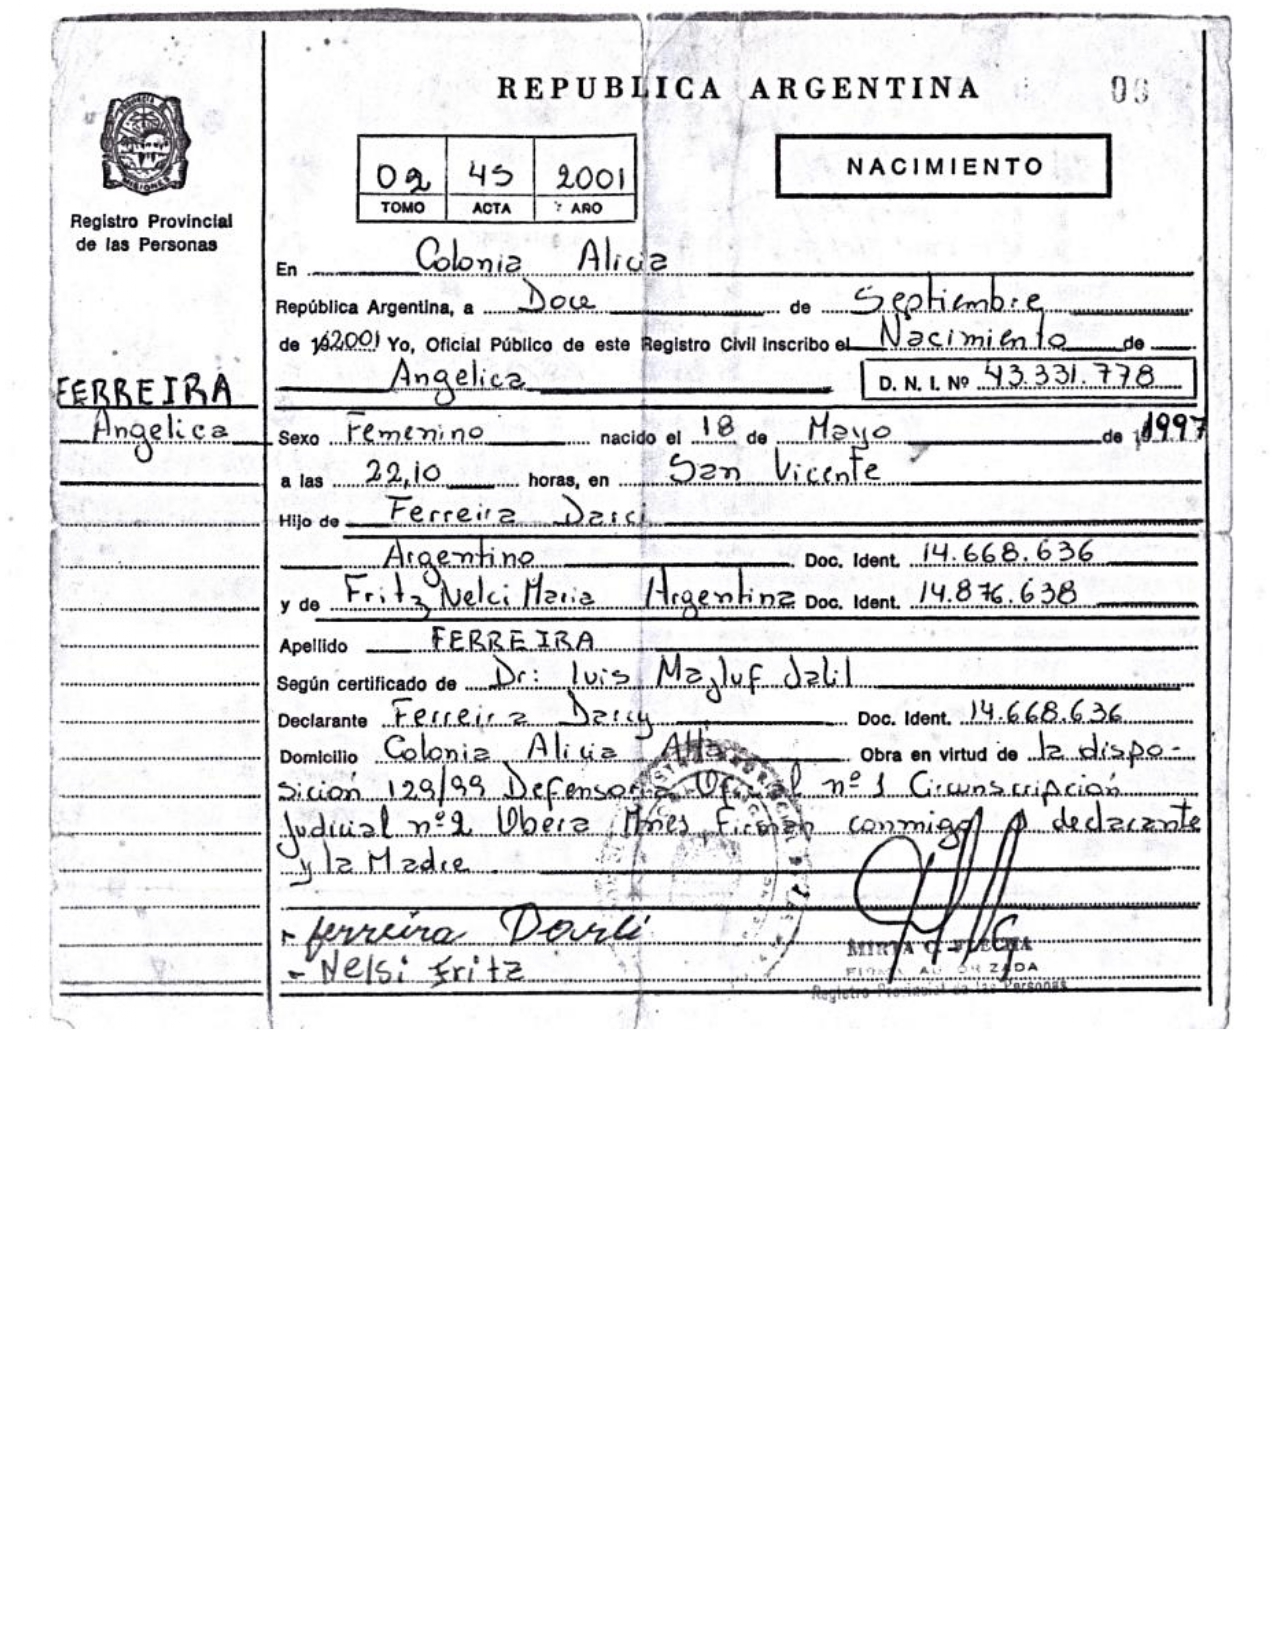 REPUBLICA ARGENTINA
Registro Provincial
de las Personas
02 45 2001
TOMO ACTA AÑO
NACIMIENTO
En Colonia Alicia
República Argentina, a Doce de Septiembre
de 2001 Yo, Oficial Público de este Registro Civil inscribo el Nacimiento de
Angelica D. N. I. Nº 43.331.778
FERREIRA
Angelica
Sexo Femenino nacido el 18 de Mayo de 1997
a las 22,10 horas, en San Vicente
Hijo de Ferreira Darci
Argentino Doc. Ident. 14.668.636
y de Fritz Nelci Maria Argentina Doc. Ident. 14.876.638
Apellido FERREIRA
Según certificado de Dr: luis Majluf Jalil
Declarante Ferreira Darcy Doc. Ident. 14.668.636
Domicilio Colonia Alicia Alta Obra en virtud de la dispo-
sición 129/99 Defensoria Oficial nº 1 Circunscripción
Judicial nº 2 Obera Mnes Firman conmigo declarante
y la Madre
- ferreira Darli
- Nelsi Fritz
MIRTA C. FLECHA
FIRMA AUTORIZADA
Registro Provincial de las Personas